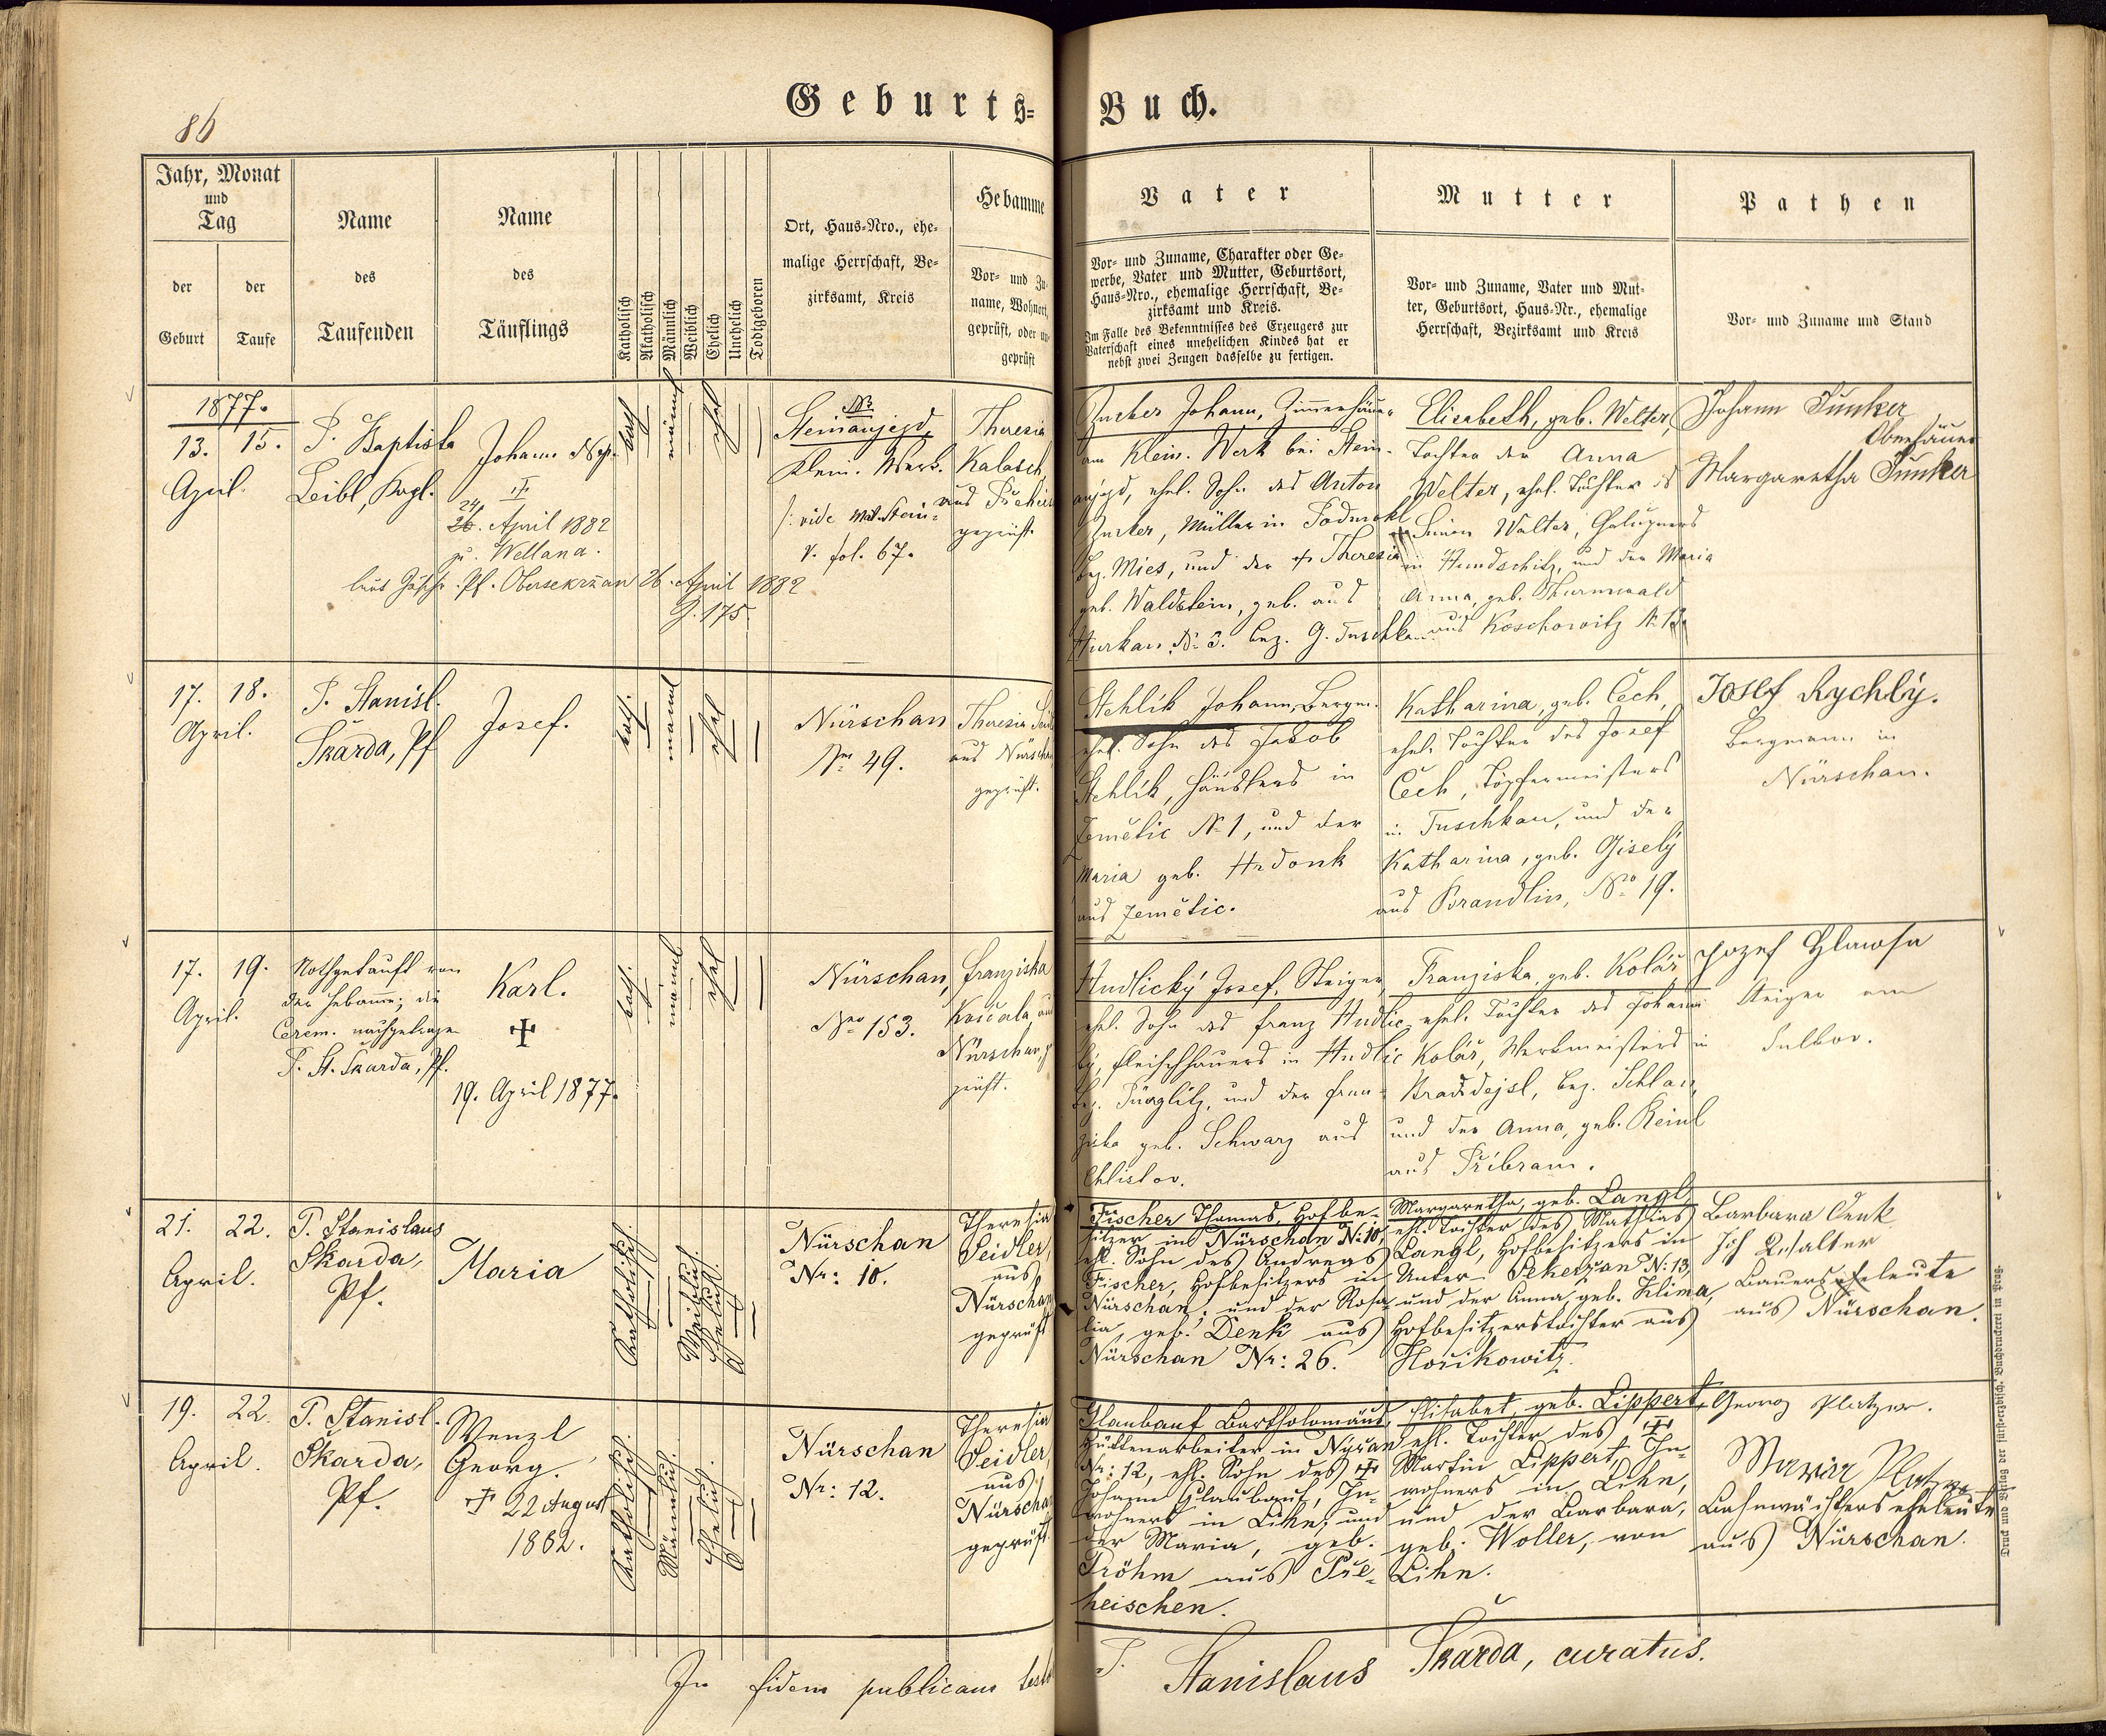 86
Geburts-Buch.
Jahr, Monat
und
Tag
der
Geburt
der
Taufe
Name
des
Taufenden
Name
des
Täuflings
Katholisch
Akatholisch
Männlich
Weiblich
Ehelich
Unehelich
Todtgeboren
Ort, Haus-Nro., ehe-
malige Herrschaft, Be-
zirksamt, Kreis
Hebamme
Vor- und Zu-
name, Wohnort,
geprüft, oder un-
geprüft
Vater
Vor- und Zuname, Charakter oder Ge-
werbe, Vater und Mutter, Geburtsort,
Haus-Nro., ehemalige Herrschaft, Be-
zirksamt und Kreis.
Im Falle des Bekenntnisses des Erzeugers zur
Vaterschaft eines unehelichen Kindes hat er
nebst zwei Zeugen dasselbe zu fertigen.
Mutter
Vor- und Zuname, Vater und Mut-
ter, Geburtsort, Haus-Nr., ehemalige
Herrschaft, Bezirksamt und Kreis
Pathen
Vor- und Zuname und Stand
1877.
13. 15.
April.
P. Baptista
Leibl, Kapl.
Johann Nep.
24
26. April 1882
zu Wellana.
Pf. Obersekrzan 26. April 1882
J. 175.
kath
männl
ehel
Steinaujezd,
Klein. Werk.
/: vide Mat. Stein-
v. fol. 67.
Theresia
Kalasch
aus
geprüft.
Zucker Johann,
am Klein. Werk bei Stein-
aujezd, ehel. Sohn des Anton
Zucker, Müller in
bez. Mies, und der + Theresia
geb. Waldstein, geb. aus
Hurkau N: 3. bez. G. Tuschkau
Elisabeth, geb. Welter,
Tochter der Anna
Welter, ehel. Tochter des
Simon Walter,
in Hundschitz, und der Maria
Anna, geb. Thurnwald
aus Koschowitz N. 13.
Johann Junker
Oberhäuer
Margaretha Junker
17. 18.
April.
P. Stanisl.
Škarda, Pf
Josef.
kath.
männl
ehel
Nürschan
Nro 49.
Theresia Seidl
aus Nürschan
geprüft.
Stehlík Johann, Bergm.
ehel. Sohn des Jakob
Stehlík, Häuslers in
Zemětic N. 1, und der
Maria geb. Hrdonk
aus Zemětic.
Katharina, geb. Čech,
ehel. Tochter des Josef
Čech, Töpfermeisters
in Tuschkau, und der
Katharina, geb. Gisely
aus Brandlin, Nro 19.
Josef Rychlý.
Bergmann in
Nürschan.
17. 19.
April.
Nothgetauft von
der Hebame; die
Cerem. nachgetragen
P. St. Škarda, Pf.
Karl.
+
19. April 1877.
kath.
männl
ehel
Nürschan,
Nro 153.
Franziska
aus
Nürschan, ge-
prüft.
Hudlický Josef, Steiger
ehel. Sohn des Franz Hudlic-
ký, Fleischhauers in Hudlic
bez. Pürglitz, und der Fran-
ziska geb. Schwarz aus
Chlistov.
Franziska, geb. Kolář
ehel. Tochter des Johann
Kolář, Werkmeisters in
bez. Schlan,
und der Anna, geb. Reinl
aus Příbram.
Jozef Hlawsa
Steiger am
Sulkov.
21. 22.
April.
P. Stanislaus
Škarda,
Pf.
Maria
Katholisch.
Weiblich.
Ehelich.
Nürschan
Nr: 10.
Theresia
Seidler,
aus
Nürschan
geprüft
Fischer Thomas, Hofbe-
sitzer in Nürschan N: 10,
ehl. Sohn des Andreas
Fischer, Hofbesitzers in
Nürschan, und der Rosa-
lia, geb. Denk aus
Nürschan Nr: 26.
Margaretha, geb. Langl
ehl. Tochter des Mathias
Langl, Hofbesitzers in
Unter- Sekeřzan N: 13,
und der Anna, geb. Klima,
Hofbesitzerstochter aus
Hořikowitz.
Barbara Denk
Bauerseheleute
aus Nürschan.
19. 22.
April.
P. Stanisl.
Škarda,
Pf.
Wenzl
Georg.
+ 22 August
1882.
Katholisch.
Männlich.
Ehelich.
Nürschan
Nr: 12.
Theresia
Seidler,
aus
Nürschan
geprüft.
Glaubauf Bartholomäus,
Hüttenarbeiter in Nyran
Nr: 12, ehl. Sohn des +
Johann Glaubauf, In-
wohners in Lihn, und
der Maria, geb.
Pröhm aus Pře-
heischen.
Elisabet, geb. Lippert,
ehl. Tochter des +
Martin Lippert, In-
wohners in Lihn,
und der Barbara,
geb. Woller, von
Lihn.
Georg Platzer.
Maria Platzer
Bahnwächterseheleute
aus Nürschan.
In fidem publicam
P. Stanislaus Škarda, curatus.
Druck und Verlag der fürsterzbisch. Buchdruckerei in Prag.